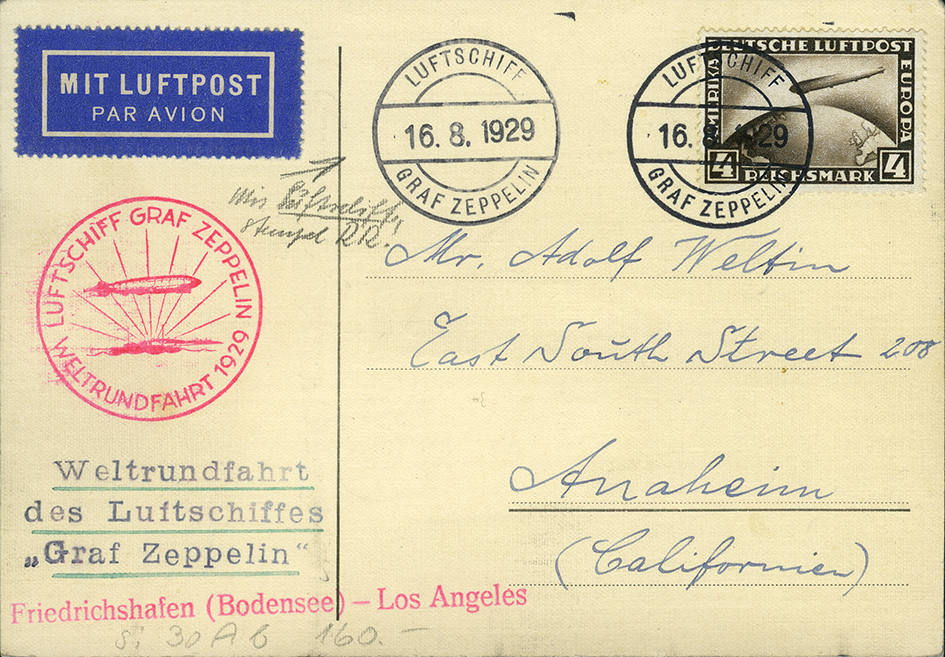 MIT LUFTPOST
PAR AVION
LUFTSCHIFF
16. 8. 1929
GRAF ZEPPELIN
LUFTSCHIFF
16. 8. 1929
GRAF ZEPPELIN
DEUTSCHE LUFTPOST
EUROPA
4
4
REICHSMARK
mit Luftschiff!
stempel RR.!
LUFTSCHIFF GRAF ZEPPELIN
WELTRUNDFAHRT 1929
Mr. Adolf Weltin
East South Street 208
Anaheim
(Californien)
Weltrundfahrt
des Luftschiffes
„Graf Zeppelin“
Friedrichshafen (Bodensee) – Los Angeles
30 A b 160.–